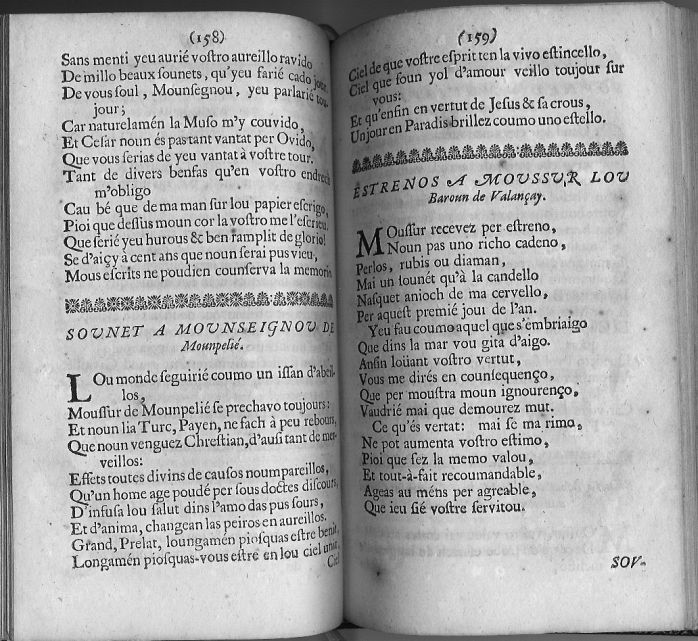 (158)
Sans menti yeu aurié vostro aureillo ravido
De millo beaux sounets, qu'yeu farié cado jour
De vous soul, Mounsegnou, yeu parlarié tou-
jour;
Car naturelamén la Muso m'y couvido,
Et Cesar noun és pas tant vantat per Ovido,
Que vous serias de yeu vantat à vostre tour.
Tant de divers benfas qu'en vostro endrech
m'obligo
Cau bé que de ma man sur lou papier escrigo,
Pioi que dessus moun cor la vostro me l'escrieu.
Que serié yeu hurous & ben ramplit de glorio!
Se d'aiçy à cent ans que noun serai pus vieu,
Mous escrits ne poudien counserva la memorio
SOUNET A MOUNSEIGNOU DE
Mounpelié.
LOu monde seguirié coumo un issan d'abeil-
los,
Moussur de Mounpelié se prechavo toujours:
Et noun lia Turc, Payen, ne fach à peu rebours,
Que noun venguez Chrestian, d'ausi tant de mer-
veillos:
Effets toutes divins de causos noumpareillos,
Qu'un home age poudé per sous doctes discours,
D'infusa lou salut dins l'amo das pus sours,
Et d'anima, changean las peiros en aureillos.
Grand, Prelat, loungamén piosquas estre benit,
Longamén piosquas-vous estre en lou ciel unit,
Ciel
(159)
Ciel de que vostre esprit ten la vivo estincello,
Ciel que soun yol d'amour veillo toujour sur
vous:
Et qu'enfin en vertut de Jesus & sa crous,
Un jour en Paradis brillez coumo uno estello.
ESTRENOS A MOUSSUR LOU
Baroun de Valançay.
MOussur recevez per estreno,
Noun pas uno richo cadeno,
Perlos, rubis ou diaman,
Mai un sounét qu'à la candello
Nasquet anioch de ma cervello,
Per aquest premié jour de l'an.
Yeu fau coumo aquel que s'embriaigo
Que dins la mar vou gita d'aigo.
Ansin loüant vostro vertut,
Vous me dirés en counsequenço,
Que per moustra moun ignourenço,
Vaudrié mai que demourez mut.
Ce qu'és vertat: mai se ma rimo,
Ne pot aumenta vostro estimo,
Pioi que sez la memo valou,
Et tout-à-fait recoumandable,
Ageas au méns per agreable,
Que ieu sié vostre servitou.
SOU-